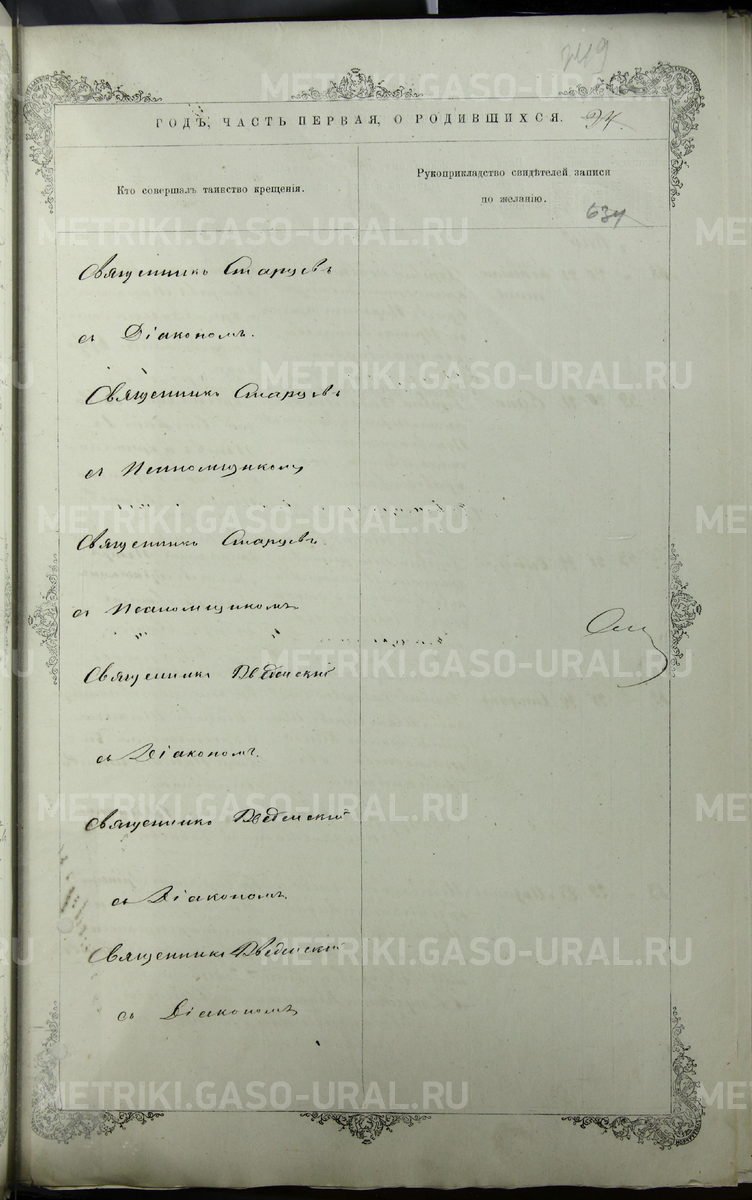 349
ГОДЪ, ЧАСТЬ ПЕРВАЯ, О РОДИВШИХСЯ.
Кто совершалъ таинство крещенія.
Рукоприкладство свидѣтелей записи
по желанію.
634
Священникъ Старцевъ
съ Діакономъ.
Священникъ Старцевъ
съ Псаломщикомъ
Священникъ Старцевъ
съ Псаломщикомъ
Священникъ Введенскій
съ Діакономъ.
Священникъ Введенскій
съ Діакономъ
Священникъ Введенскій
съ Діакономъ
METRIKI.GASO-URAL.RU